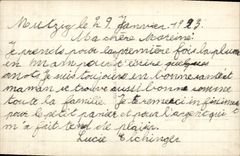 Mutzig le 29 Janvier 1923.
Ma chère Mareine!
Je prends pour la première fois la plume
en main pour t'écrire quelques
mots. Je suis toujours en bonne santé et
maman se trouve aussi bonne comme
toute la famille. Je te remercie infiniment
pour le petit panier et pour l'argent qui
m'a fait tend de plaisir.
Lucie Eichinger